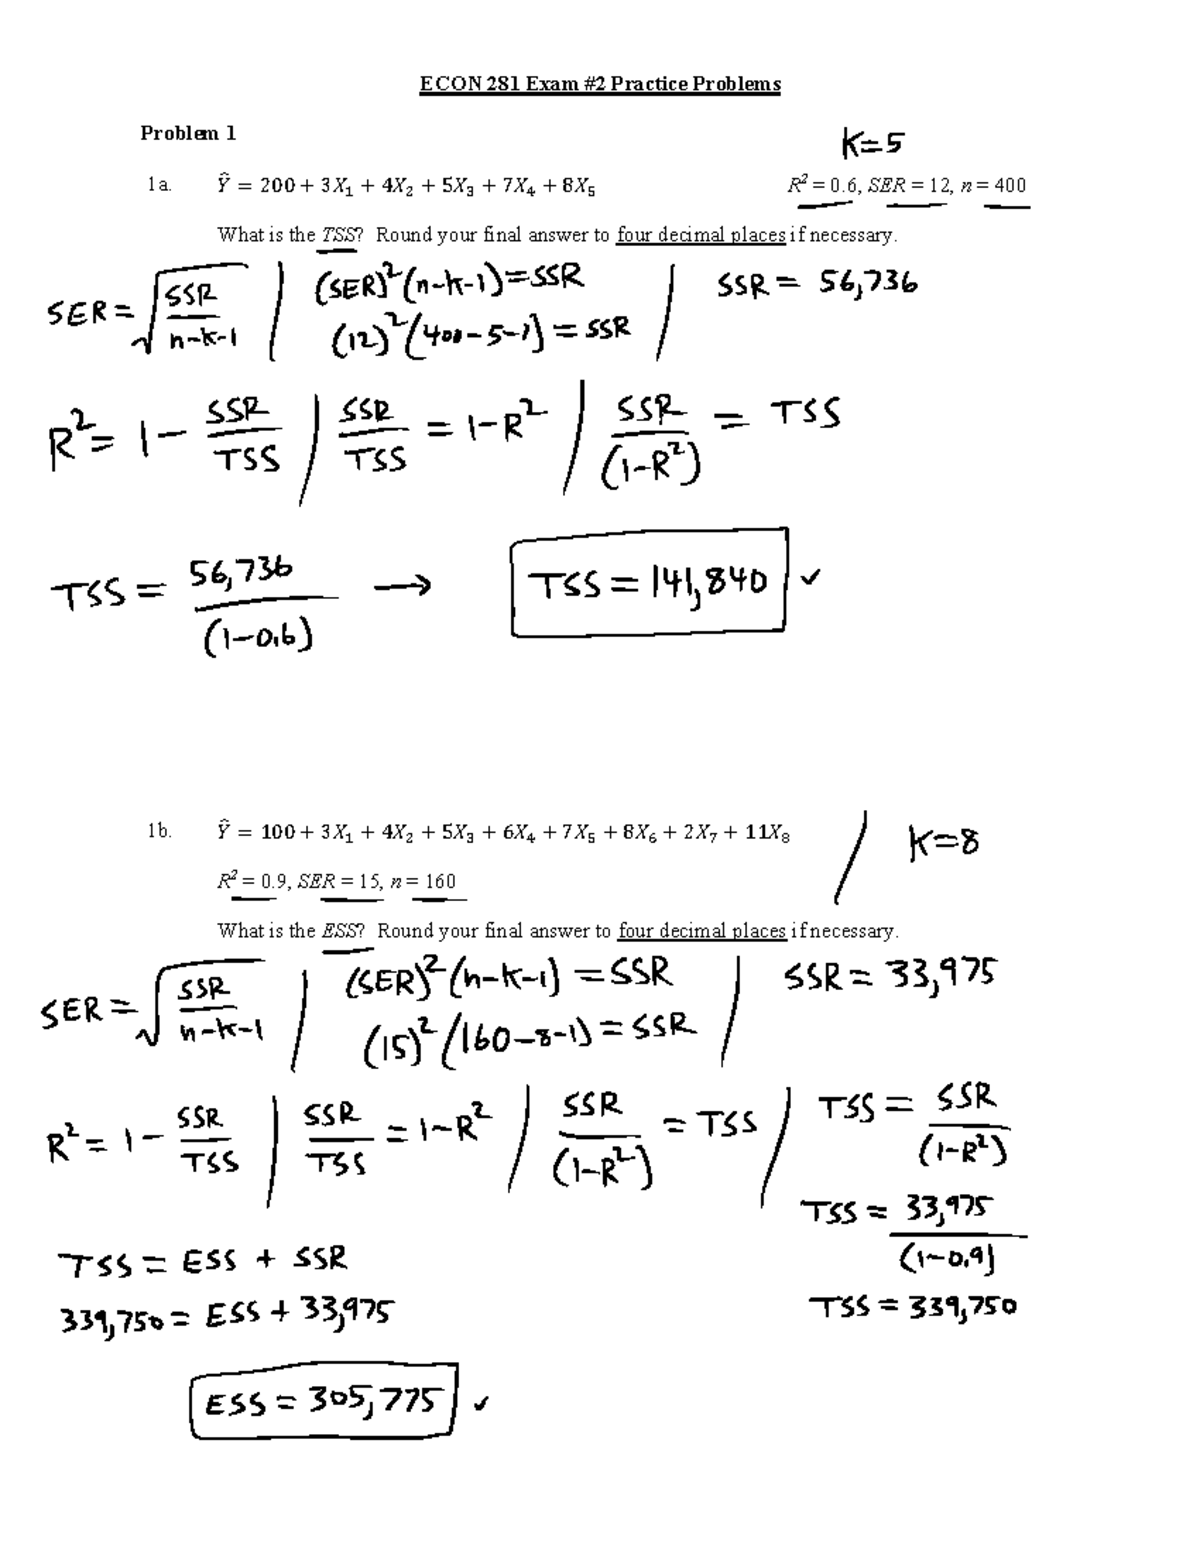 ECON 281 Exam #2 Practice Problems
Problem 1
K=5
1a. Ŷ = 200 + 3X₁ + 4X₂ + 5X₃ + 7X₄ + 8X₅ R² = 0.6, SER = 12, n = 400
What is the TSS? Round your final answer to four decimal places if necessary.
SER = √(SSR/(n-k-1)) | (SER)²(n-k-1)=SSR | SSR = 56,736
(12)²(400-5-1)=SSR
R² = 1 - SSR/TSS | SSR/TSS = 1-R² | SSR/(1-R²) = TSS
TSS = 56,736/(1-0.6) → TSS = 141,840 ✓
1b. Ŷ = 100 + 3X₁ + 4X₂ + 5X₃ + 6X₄ + 7X₅ + 8X₆ + 2X₇ + 11X₈ / K=8
R² = 0.9, SER = 15, n = 160
What is the ESS? Round your final answer to four decimal places if necessary.
SER = √(SSR/(n-k-1)) | (SER)²(n-k-1)=SSR | SSR = 33,975
(15)²(160-8-1)=SSR
R² = 1 - SSR/TSS | SSR/TSS = 1-R² | SSR/(1-R²) = TSS | TSS = SSR/(1-R²)
TSS = 33,975/(1-0.9)
TSS = ESS + SSR
339,750 = ESS + 33,975
TSS = 339,750
ESS = 305,775 ✓